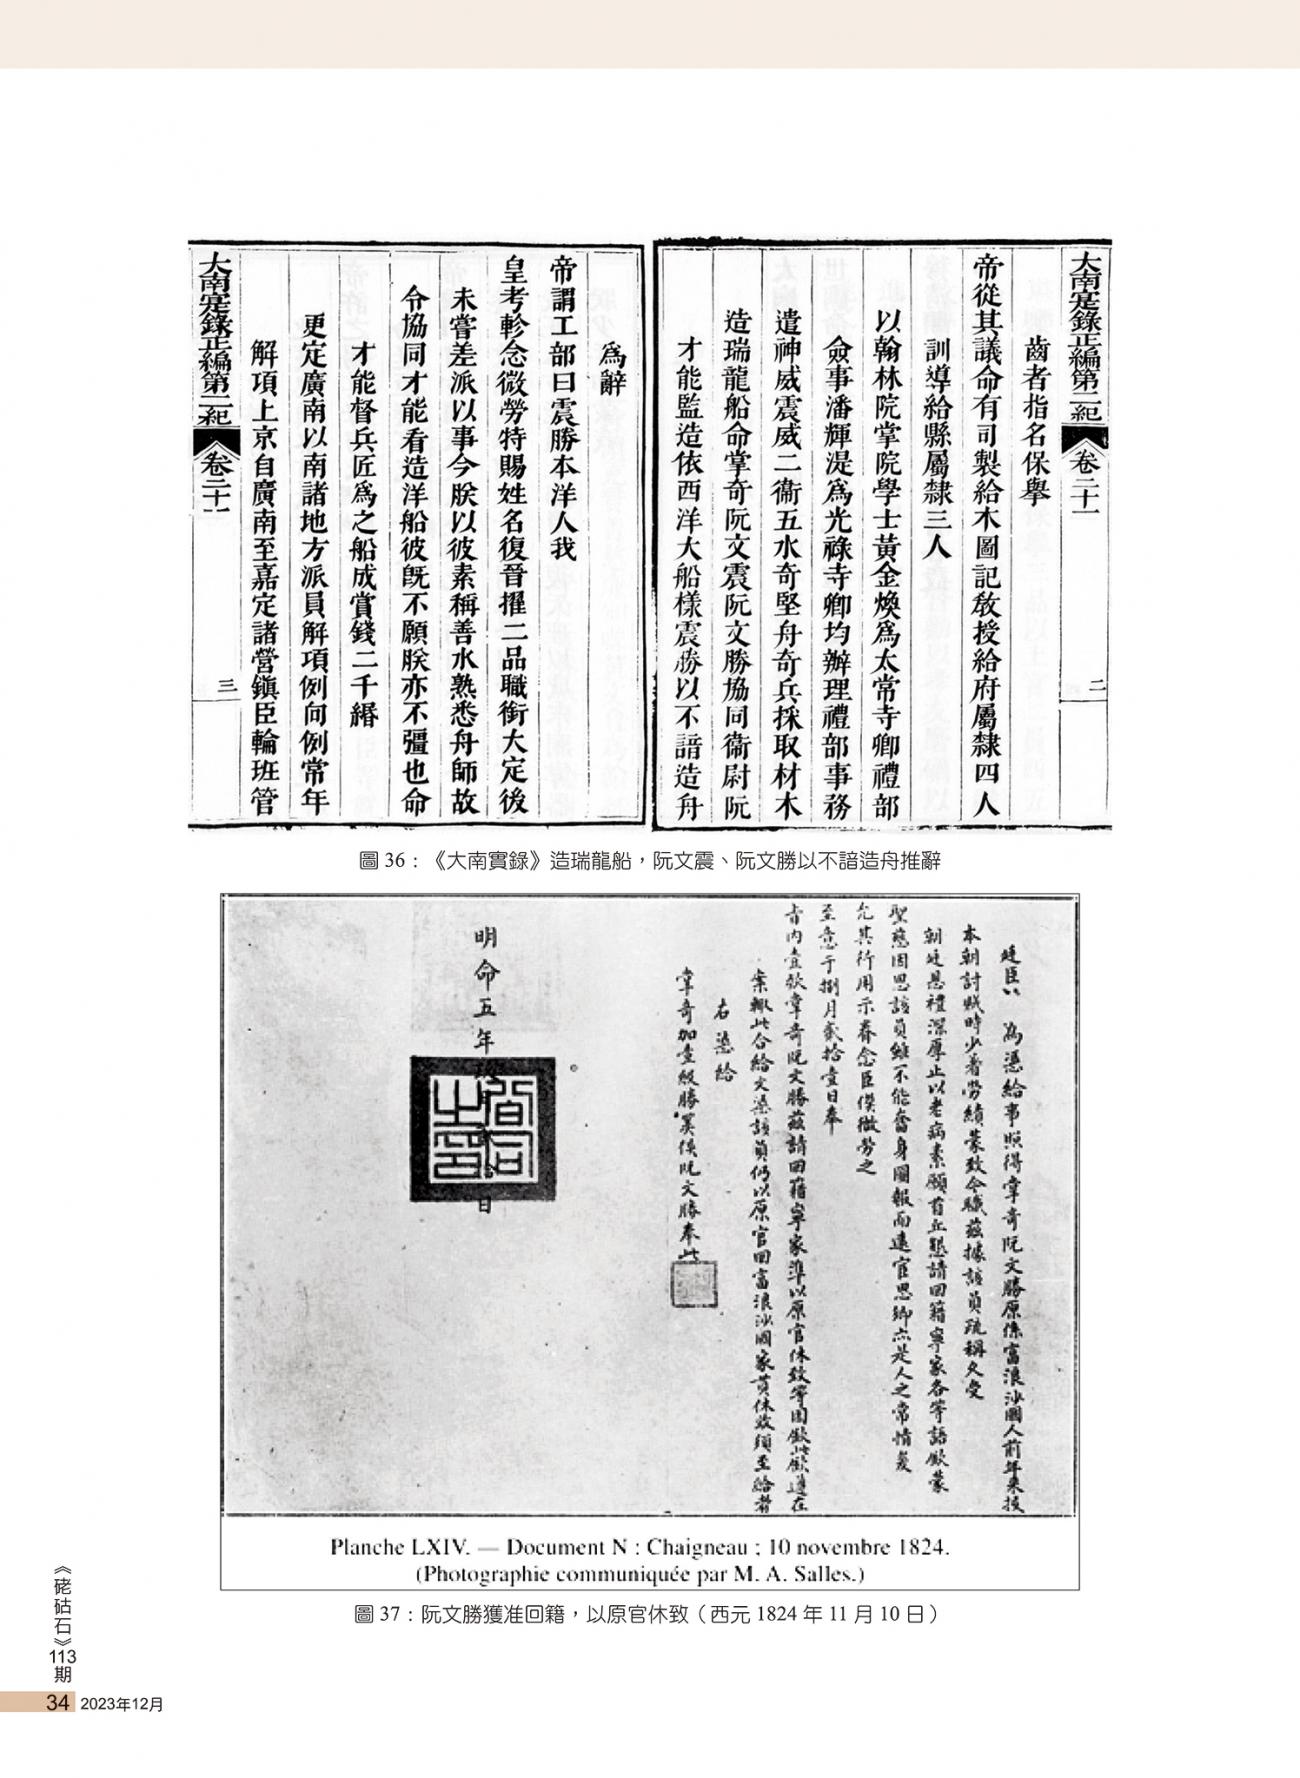 大南寔錄正編第二紀 卷二十一 二
齒者指名保擧
帝從其議命有司製給木圖記敎授給府屬隸四人
訓導給縣屬隸三人
以翰林院掌院學士黃金煥爲太常寺卿禮部
僉事潘輝湜爲光祿寺卿均辦理禮部事務
遣神威震威二衞五水奇堅舟奇兵採取材木
造瑞龍船命掌奇阮文震阮文勝協同衞尉阮
才能監造依西洋大船樣震勝以不諳造舟
爲辭
帝謂工部曰震勝本洋人我
皇考軫念微勞特賜姓名復晉擢二品職銜大定後
未嘗差派以事今朕以彼素稱善水熟悉舟師故
令協同才能看造洋船彼旣不願朕亦不彊也命
才能督兵匠爲之船成賞錢二千緡
更定廣南以南諸地方派員解項例向例常年
解項上京自廣南至嘉定諸營鎭臣輪班管
大南寔錄正編第二紀 卷二十一 三
圖 36：《大南實錄》造瑞龍船，阮文震、阮文勝以不諳造舟推辭
廷臣 爲憑給事照得掌奇阮文勝原係富浪沙國人前年來投
本朝討賊時少著勞績蒙致今職茲據該員疏稱久受
朝廷恩禮深厚止以老病素願首丘懇請回籍寧家各等語欽蒙
聖慈因思該員雖不能奮身圖報而遠宦思鄉亦是人之常情爰
允其行用示眷念臣僕微勞之
至意于捌月貳拾壹日奉
旨內壹款掌奇阮文勝茲請回籍寧家準以原官休致等因欽此欽遵在
案輒此合給文憑該員仍以原官回富浪沙國家貫休致須至給者
右憑給
掌奇加壹級勝 侯阮文勝奉此
明命五年 月 拾日
Planche LXIV. — Document N : Chaigneau ; 10 novembre 1824.
(Photographie communiquée par M. A. Salles.)
圖 37：阮文勝獲准回籍，以原官休致（西元 1824 年 11 月 10 日）
《硓𥑮石》113期
34 2023年12月